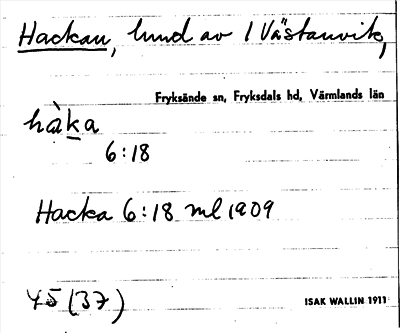 Hackan, lund av 1 Västanvik,
Fryksände sn, Fryksdals hd, Värmlands län
hàka
6:18
Hacka 6:18 ml 1909
45 (37)
ISAK WALLIN 1911